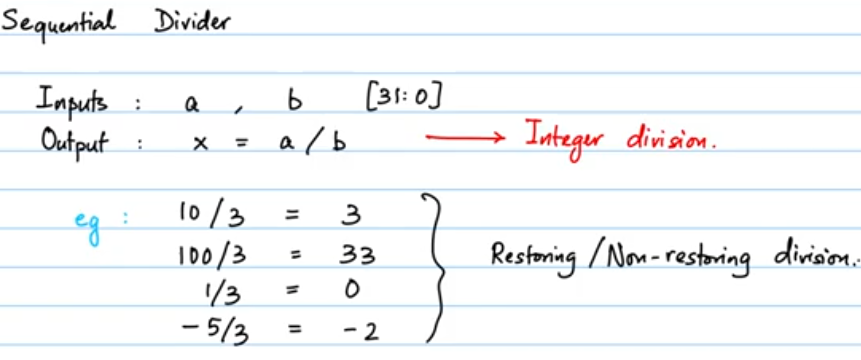 Sequential Divider
Inputs : a , b [31:0]
Output : x = a / b → Integer division.
eg : 10/3 = 3
100/3 = 33
1/3 = 0
-5/3 = -2
Restoring / Non-restoring division.